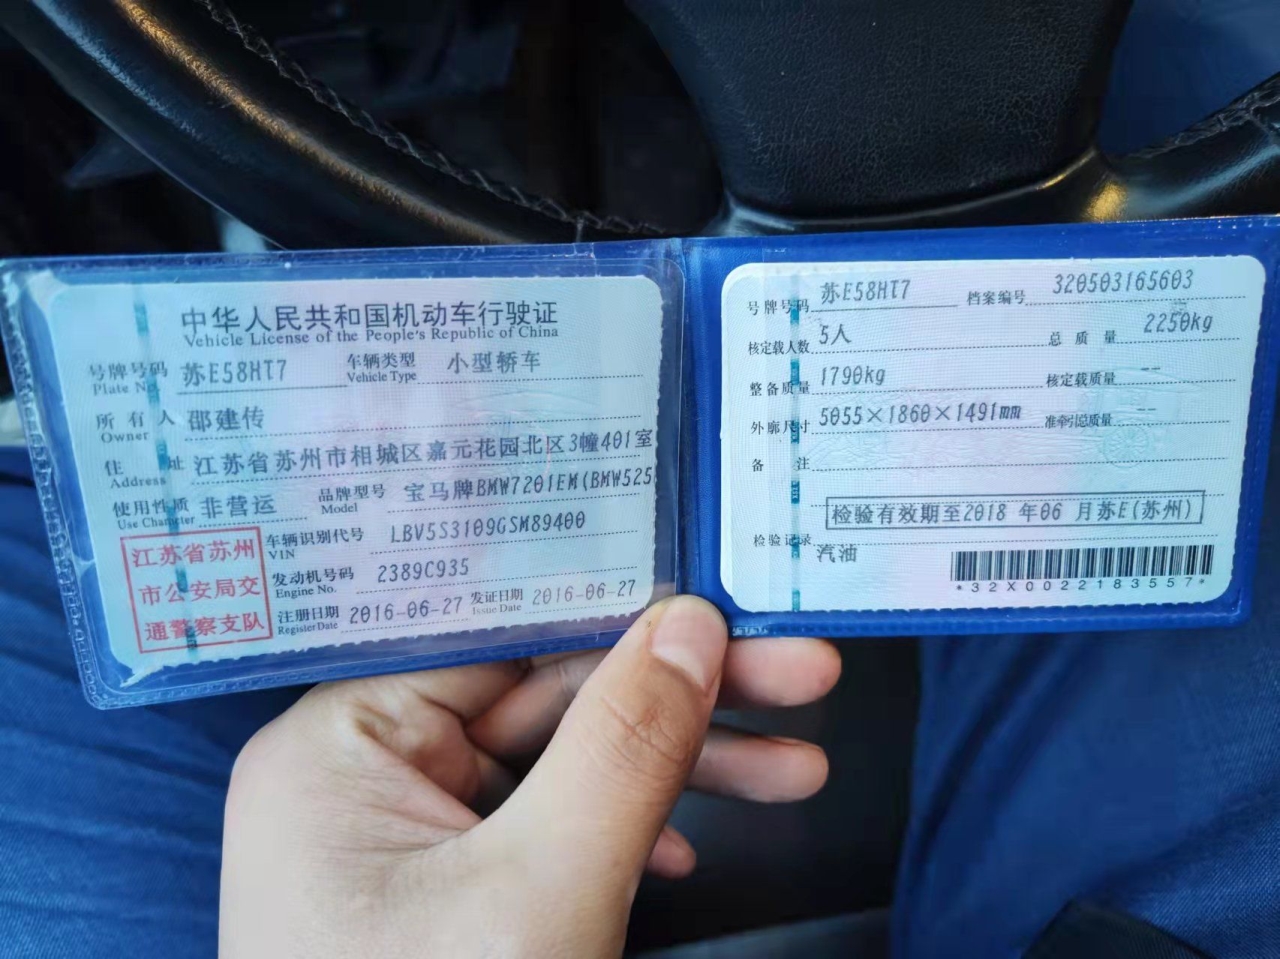 中华人民共和国机动车行驶证
Vehicle License of the People's Republic of China
号牌号码 苏E58HT7 车辆类型 小型轿车
Plate No. Vehicle Type
所有人 邵建传
Owner
住址 江苏省苏州市相城区嘉元花园北区3幢401室
Address
使用性质 非营运 品牌型号 宝马牌BMW7201EM(BMW525
Use Character Model
江苏省苏州
市公安局交
通警察支队
车辆识别代号 LBV5S3109GSM89400
VIN
发动机号码 2389C935
Engine No.
注册日期 2016-06-27 发证日期 2016-06-27
Register Date Issue Date
号牌号码 苏E58HT7 档案编号 320503165603
核定载人数 5人 总质量 2250kg
整备质量 1790kg 核定载质量 --
外廓尺寸 5055×1860×1491mm 准牵引总质量 --
备注
检验有效期至2018 年06 月苏E(苏州)
检验记录
汽油
*32X0022183557*